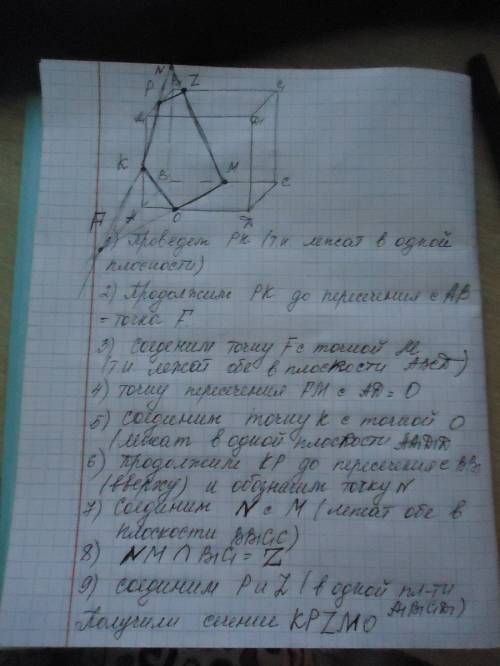 N
P Z C₁
K
B M C
F A O D
1) Проведем PK (т.к. лежат в одной
плоскости)
2) Продолжим PK до пересечения с AB
= точка F
3) соеденим точку F с точкой M
(т.к лежат обе в плоскости ABCD)
4) точку пересечения FM с AD = O
5) соединим точку K с точкой O
(лежат в одной плоскости AA₁D₁D
6) Продолжим KP до пересечения с BB₁
(вверху) и обозначим точку N
7) Соединим N с M (лежат обе в
плоскости BB₁C₁C)
8) NM ∩ B₁C₁ = Z
9) соединим P и Z (в одной пл-ти
A₁B₁C₁D₁)
Получили сечение KPZMO